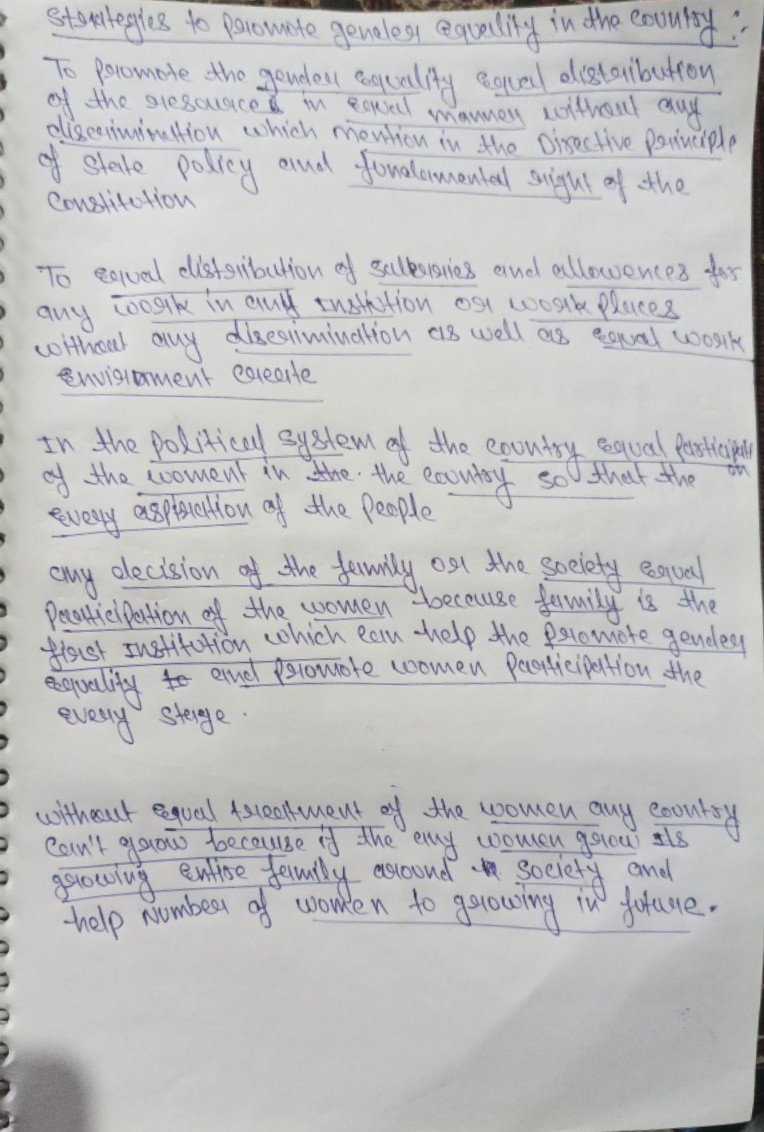 Strategies to promote gender equality in the country :-
To promote the gender equality equal distribution
of the resources in equal manner without any
discrimination which mention in the Directive Principle
of state policy and fundamental right of the
Constitution
To equal distribution of and allowences for
any work in any Instution or work places
without any discrimination as well as equal work
envirnment create
In the political system of the country equal participation
of the woment in the. the country so that the
every aspiration of the people
any decision of the family or the society equal
participation of the women because family is the
first Institution which can help the promote gender
equality to and promote women participation the
every stage.
without equal treatment of the women any country
can't grow because if the any women grow Its
growing entire family around society and
help Number of women to growing in future.